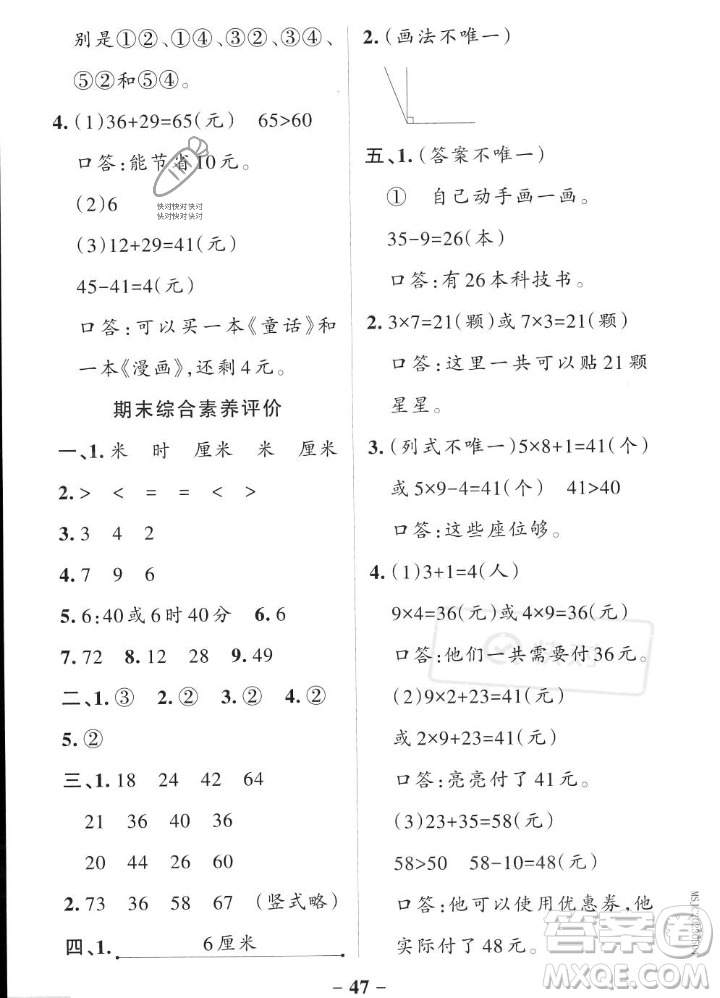 别是①②、①④、③②、③④、
⑤②和⑤④。
4.(1)36+29=65(元)　65>60
口答:能节省10元。
(2)6
(3)12+29=41(元)
45-41=4(元)
口答:可以买一本《童话》和
一本《漫画》,还剩4元。
快对快对快对
快对快对快对
期末综合素养评价
一、1.米　时　厘米　米　厘米
2.>　<　=　=　<　>
3.3　4　2
4.7　9　6
5.6:40或6时40分　6.6
7.72　8.12　28　9.69
二、1.③　2.②　3.②　4.②
5.②
三、1.18　24　42　64
21　36　40　36
20　44　28　62
2.73　36　58　67　(竖式略)
四、1.　6厘米
2.(画法不唯一)
五、1.(答案不唯一)
①　自己动手画一画。
35-9=26(本)
口答:有26本科技书。
2.3×7=21(颗)或7×3=21(颗)
口答:这里一共可以贴21颗
星星。
3.(列式不唯一)5×8+1=41(个)
或5×9-4=41(个)　41>40
口答:这些座位够。
4.(1)3+1=4(人)
9×4=36(元)或4×9=36(元)
口答:他们一共需要付36元。
(2)9×2+23=41(元)
或2×9+23=41(元)
口答:亮亮付了41元。
(3)23+35=58(元)
58>50　58-10=48(元)
口答:他可以使用优惠券,他
实际付了48元。
快对
答案圈
MXQE.COM
- 47 -